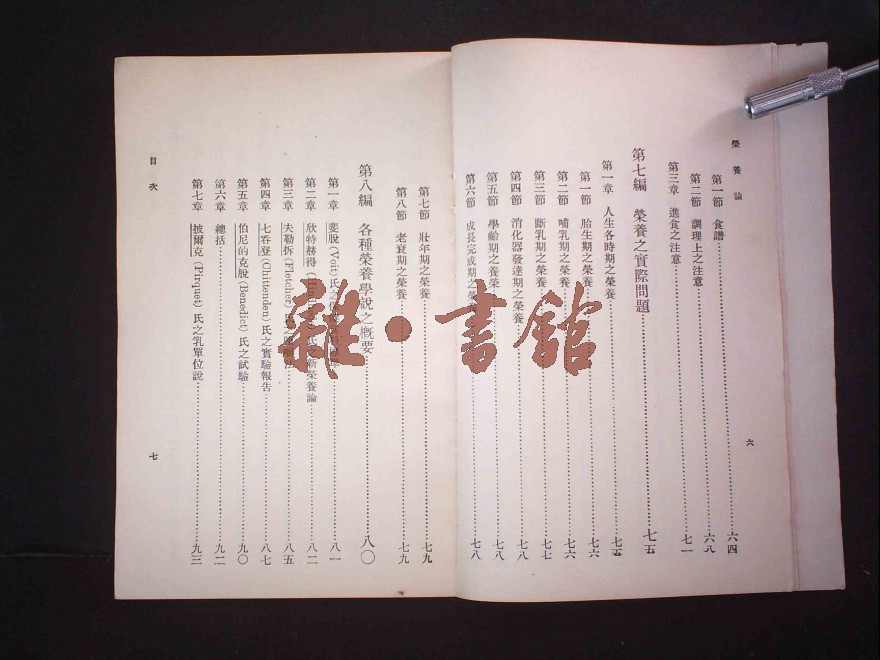 榮養論
第一節 食譜……六四
第二節 調理上之注意……六八
第三章 進食之注意……七一
第七編 榮養之實際問題……七五
第一章 人生各時期之榮養……七五
第一節 胎生期之榮養……七六
第二節 哺乳期之榮養……七六
第三節 斷乳期之榮養……七七
第四節 消化器發達期之榮養……七八
第五節 學齡期之榮養……七八
第六節 成長完成期之榮養……七八
六
目次
第七節 壯年期之榮養……七九
第八節 老衰期之榮養……七九
第八編 各種榮養學說之概要……八〇
第一章 斐脫(Voit)氏之……八一
第二章 欣特赫得 氏之新榮養論……八二
第三章 夫勒拆(Fletcher)氏之……八五
第四章 七吞登(Chittenden)氏之實驗報告……八七
第五章 伯尼的克脫(Benedict)氏之試驗……九〇
第六章 總括……九二
第七章 披爾克(Pirquet)氏之乳單位說……九三
七
雜·書館